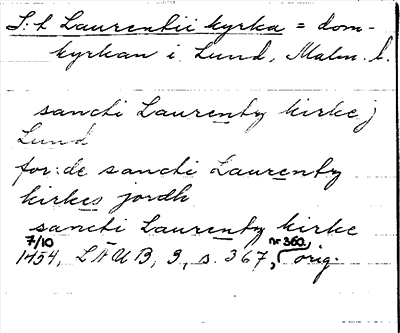 S:t Laurentii kyrka = dom-
kyrkan i Lund, Malm. l.
sancti Laurenty kirke j
Lund
for:de sancti Laurenty
kirkes jordh
sancti Laurenty kirke
7/10 1454, LÄUB, 3, s. 367, nr 360, orig.